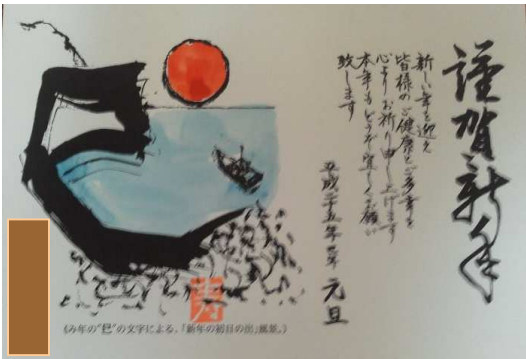 謹賀新年
新しい年を迎え
皆様のご健康とご多幸を
心よりお祈り申し上げます
本年もどうぞ宜しくお願い
致します
平成二十五年 元旦
寿
(み年の"巳"の文字による、「新年の初日の出」風景。)